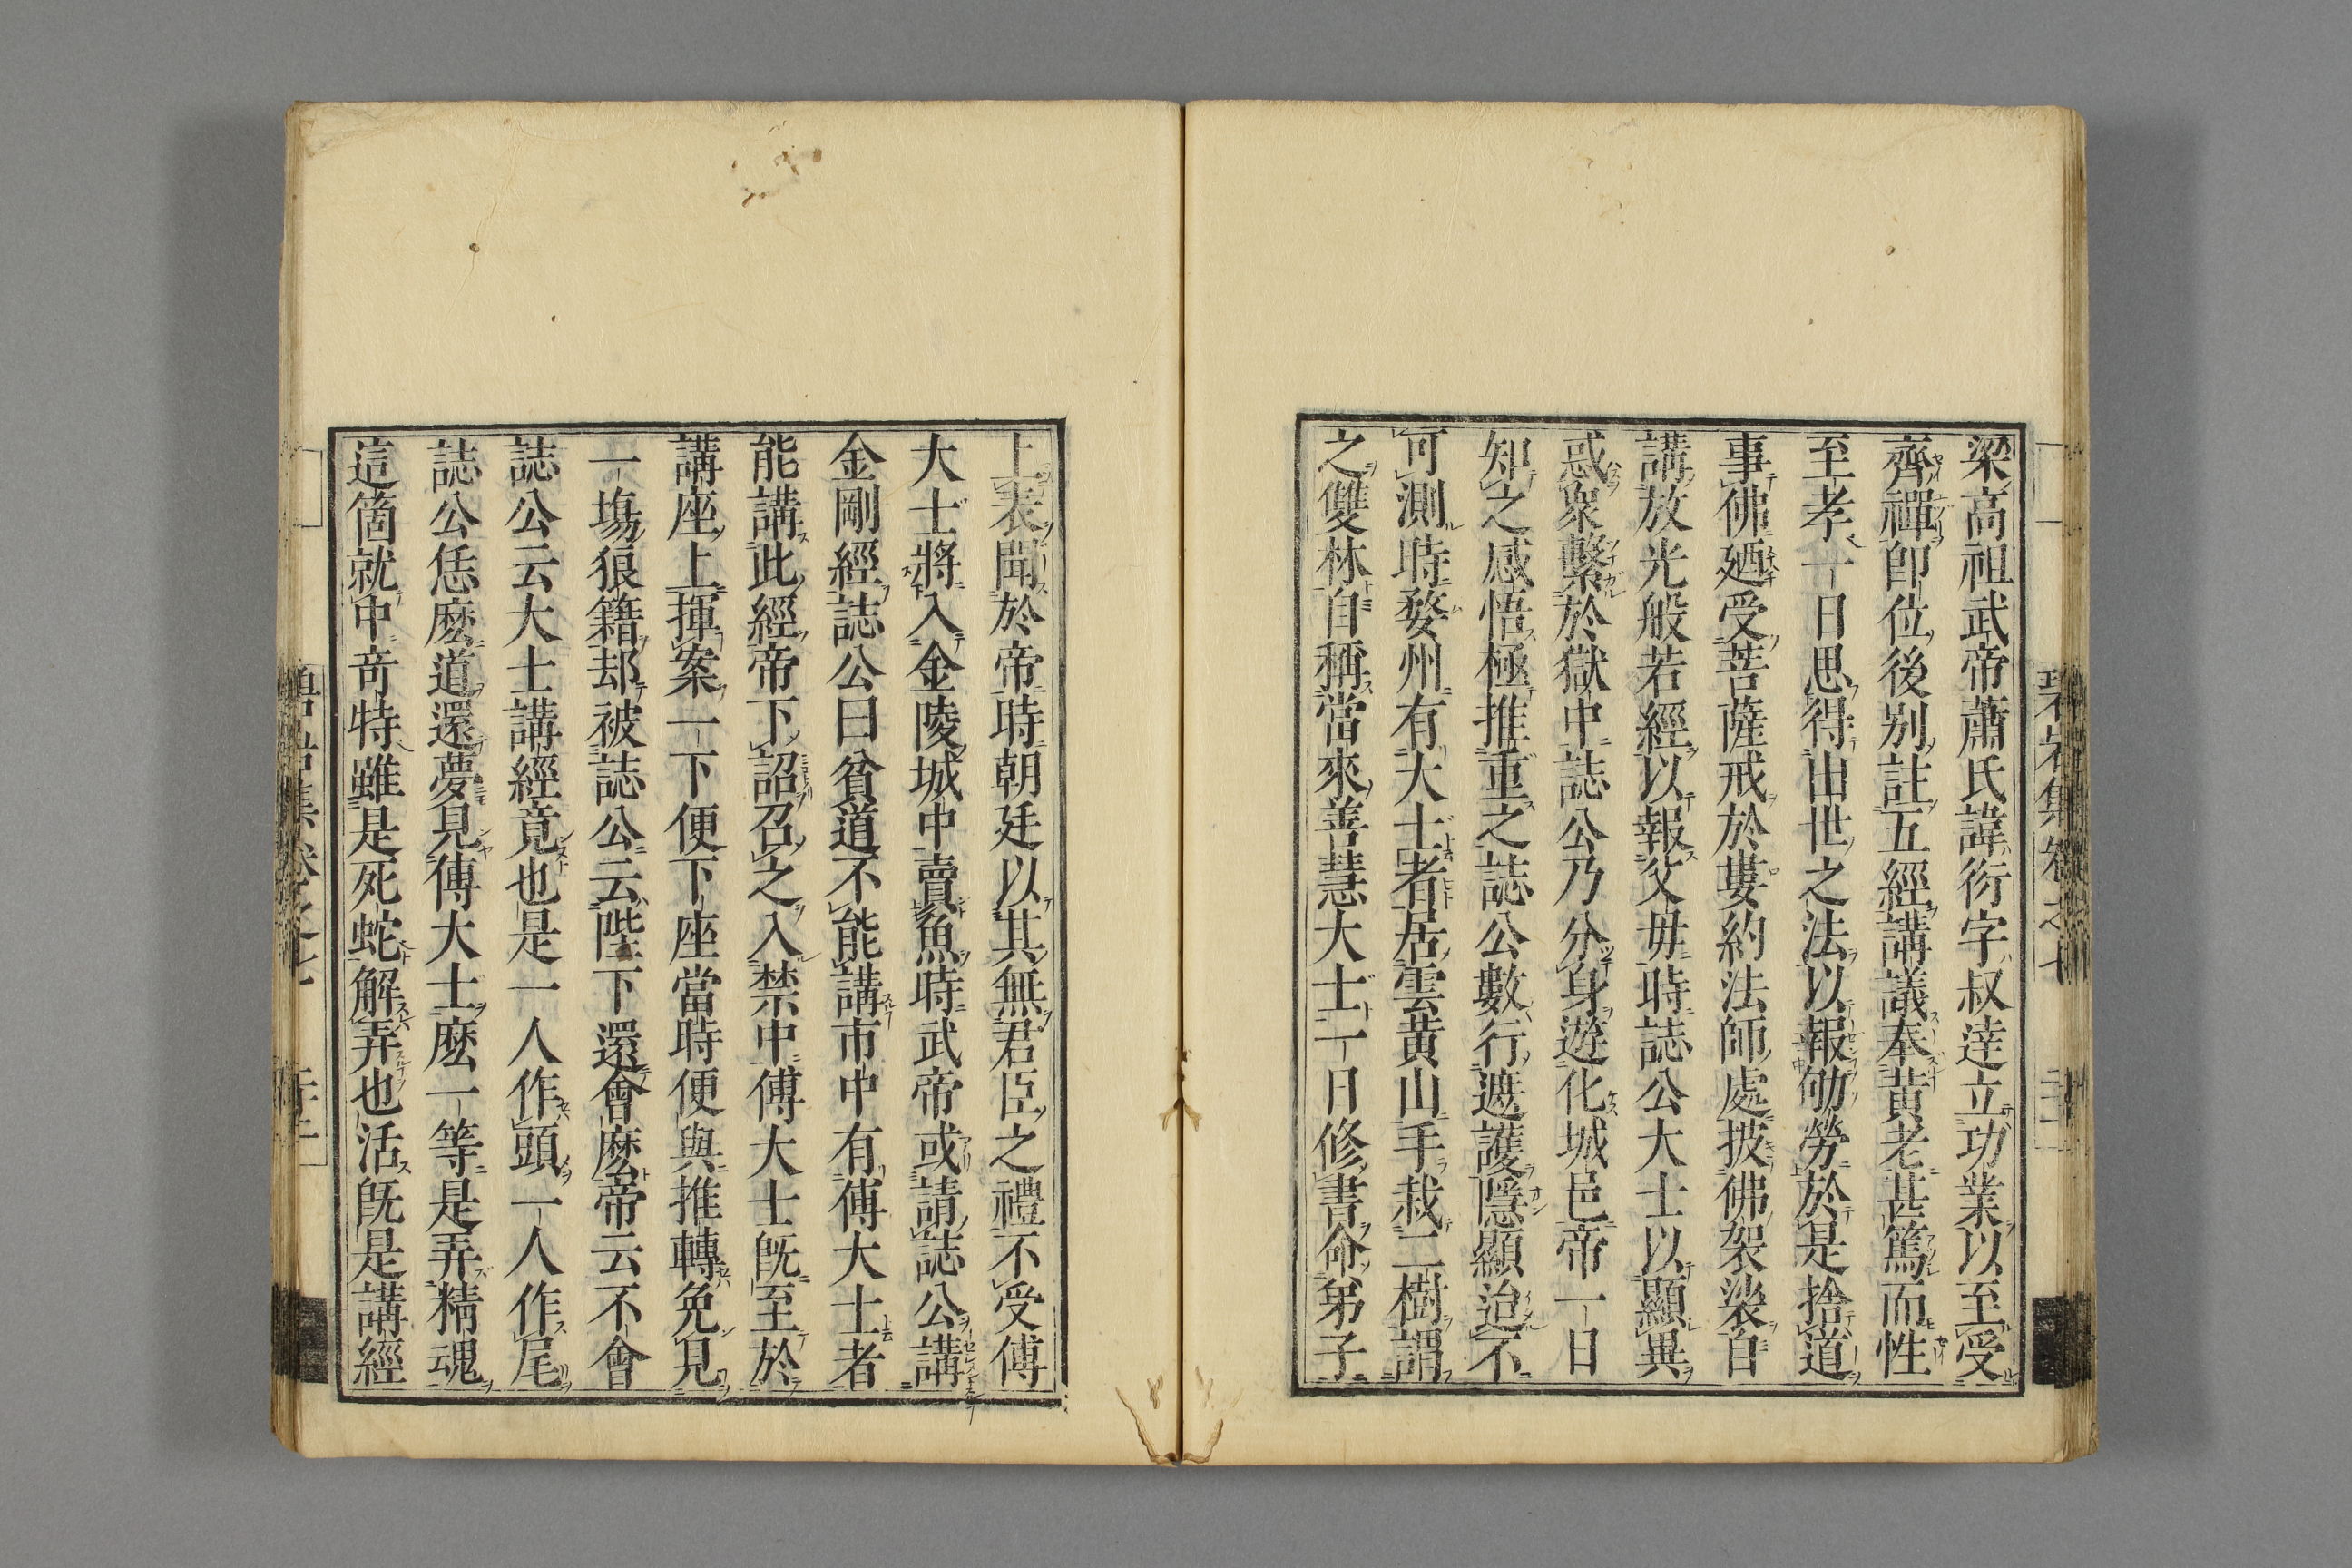 梁高祖武帝蕭氏諱衍字叔達立功業以至受
齊禪卽位後別註五經講議奉黃老甚篤而性
至孝一日思得出世之法以報劬勞於是捨道
事佛廼受菩薩戒於婁約法師處披佛袈裟自
講放光般若經以報父毋時誌公大士以顯異
惑衆繫於獄中誌公乃分身遊化城邑帝一日
知之感悟極推重之誌公數行遮護隱顯迨不
可測時婺州有大士者居雲黃山手栽二樹謂
之雙林自稱當來善慧大士一日修書命弟子
上表聞於帝時朝廷以其無君臣之禮不受傅
大士將入金陵城中賣魚時武帝或請誌公講
金剛經誌公曰貧道不能講市中有傅大士者
能講此經帝下詔召之入禁中傅大士旣至於
講座上揮案一下便下座當時便與推轉免見
一塲狼籍却被誌公云陛下還會麽帝云不會
誌公云大士講經竟也是一人作頭一人作尾
誌公恁麽道還夢見傅大士麽一等是弄精魂
這箇就中竒特雖是死蛇解弄也活旣是講經